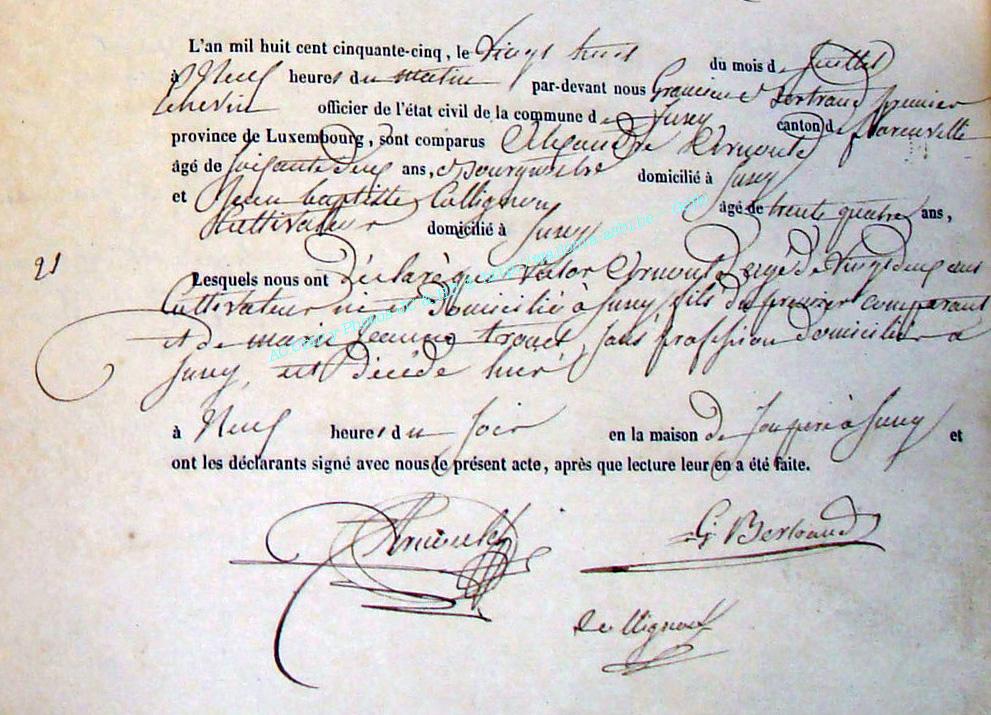 L'an mil huit cent cinquante-cinq, le Vingt huit du mois de Juillet
à Neuf heures du matin par-devant nous Gracien J Bertrand premier
Echevin officier de l'état civil de la commune de Juzey canton de
province de Luxembourg, sont comparus Alexandre Arnould
âgé de Soixante deux ans, Bourgmestre domicilié à Jusey
et Jean baptiste Collignon âgé de trente quatre ans,
Cultivateur domicilié à Jusey
21
Lesquels nous ont Déclaré que Victor Arnould agé de Vingt deux ans
Cultivateur né et domicilié à Jusey, fils du premier comparant
et de marie Jeanne, Sans profession domiciliée a
Jusey, est Décédé hier
à Neuf heures du Soir en la maison de Son père à Jusey et
ont les déclarants signé avec nous le présent acte, après que lecture leur en a été faite.
Arnould G Bertrand